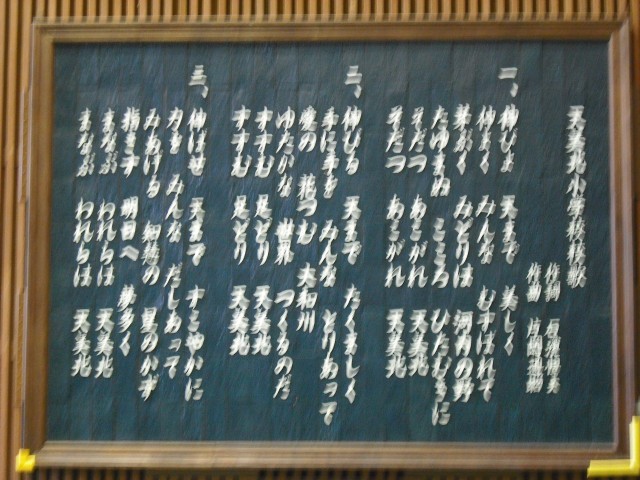 天美北小学校校歌
作詞
作曲
一、伸びよ 天まで 美しく
仲よく みんな むすばれて
若がく みどりは 河内の野
たゆまぬ こころ ひたむきに
そだつ あこがれ 天美北
そだつ あこがれ 天美北
二、伸びる 天まで たくましく
手に手を みんな とりあって
愛の 花つむ 大和川
ゆたかな 世界 つくるのだ
すすむ 足どり 天美北
すすむ 足どり 天美北
三、伸ばせ 天まで すこやかに
力を みんな だしあって
みあげる 知恵の 星のかず
指さす 明日へ 夢多く
まなぶ われらは 天美北
まなぶ われらは 天美北